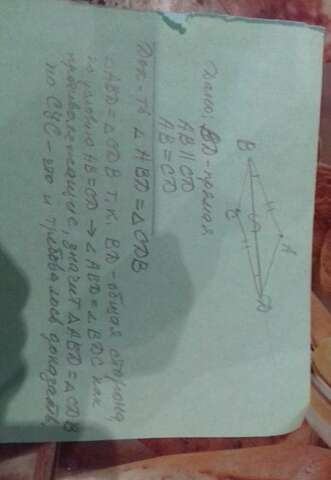 Дано: BD - прямая
AB || CD
AB = CD
B
A
C
D
Док-ть △ ABD = △ CDB
△ ABD = △ CDB т.к. BD - общая сторона,
по условию AB = CD → ∠ ABD = ∠ BDC как
значит △ ABD = △ CDB
по СУС - это и требовалось доказать.